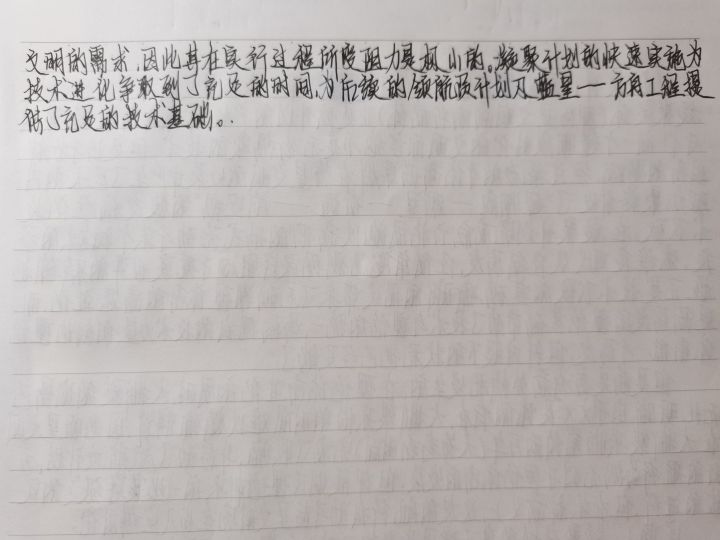 文明的需求,因此其在实行过程所受阻力是极小的,凝聚计划的快速实施为
技术进化争取到了充足的时间,为后续的领航员计划及蓝星一方舟工程提
供了充足的技术基础。